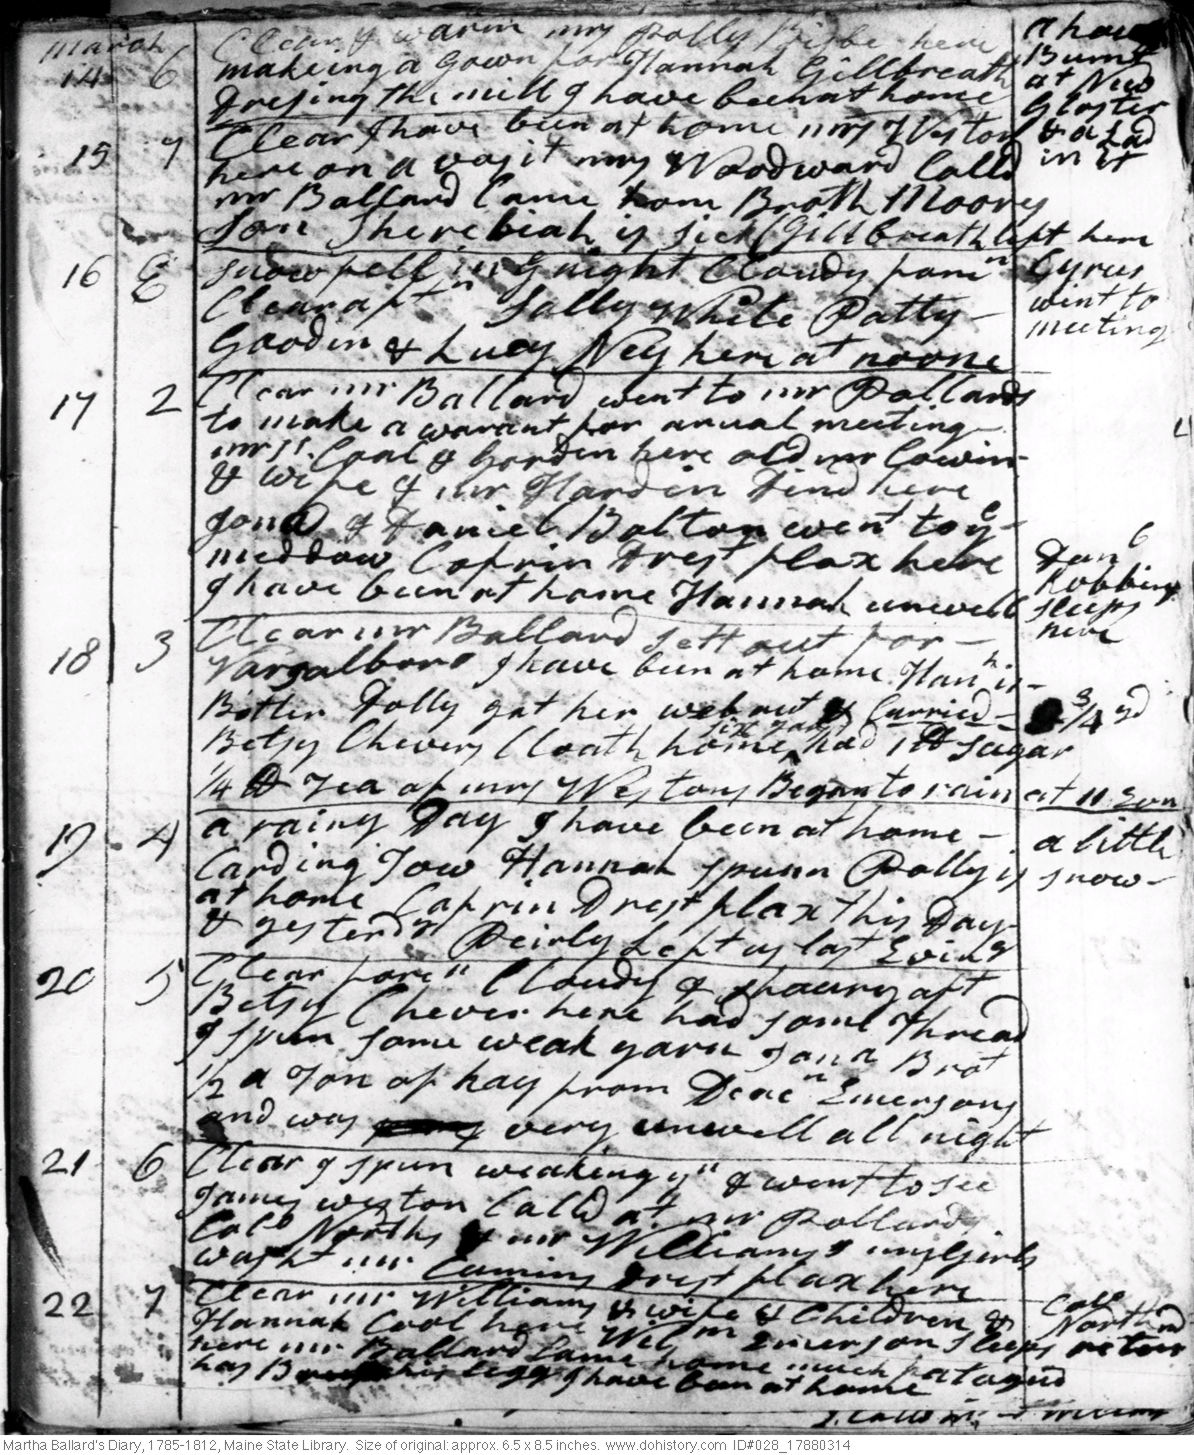 march
14 6 Clear & warm mrs Polly Bisbe here
makeing a Gown for Hannah Gillbreath
dresing the mill I have been at home
a house
Burnt
at New
Gloster
& a Lad
in it
15 7 Clear I have been at home mrs Weston
here on a vasit mrs Woodward Calld
mr Ballard Came home Broth Moors
son Sherebiah is sick Gillbreath left here
16 E snow fell in ye night Cloudy foren
Clear aftn Sally White Patty
Goodin & Lucy Ney here at noone
Cyrus
wint to
meeting
17 2 Clear mr Ballard went to mr Pollards
to make a warant for anual meeting
mrss Coal & Gorden here old mr Cowin
& wife & mr Hardin Dind here
Jona & Daniel Bolton went to ye
meddow Capt Drest flax here
I have been at home Hannah unwell
Danl
Robbins
sleeps
here
18 3 Clear mr Ballard sett out for
Varsalboro I have been at home Hanh is
Better Dolly got her web out & Carried
3/4 yd
Betsy Chevers Cloath home, had 1 lb Sugar
six yards
1/4 lb Tea of mrs Westons Began to rain at 11 Evn
19 4 a rainy Day I have been at home
Carding Tow Hannah spunn Polly is
at home Drest flax this Day
& yesterdy Peirly Left us last Evin
a little
snow
20 5 Clear foren Cloudy & showry aft
Betsy Chever here had some Thread
I spun some weak yarn Jona Brot
1/2 a Ton of hay from Deacn Emersons
and was very unwell all night
21 6 Clear I spun weaking yn & went to see
James weston Calld at mr Pollards
Colo Norths & mr Williams my Girls
washt mr Cuming Drest flax here
22 7 Clear mr Williams & wife & Children &
Hannah Cool here Wilm Emerson Sleeps
here mr Ballard Came home much fatagud
has his Legg I have been at home
Colo
North
retur